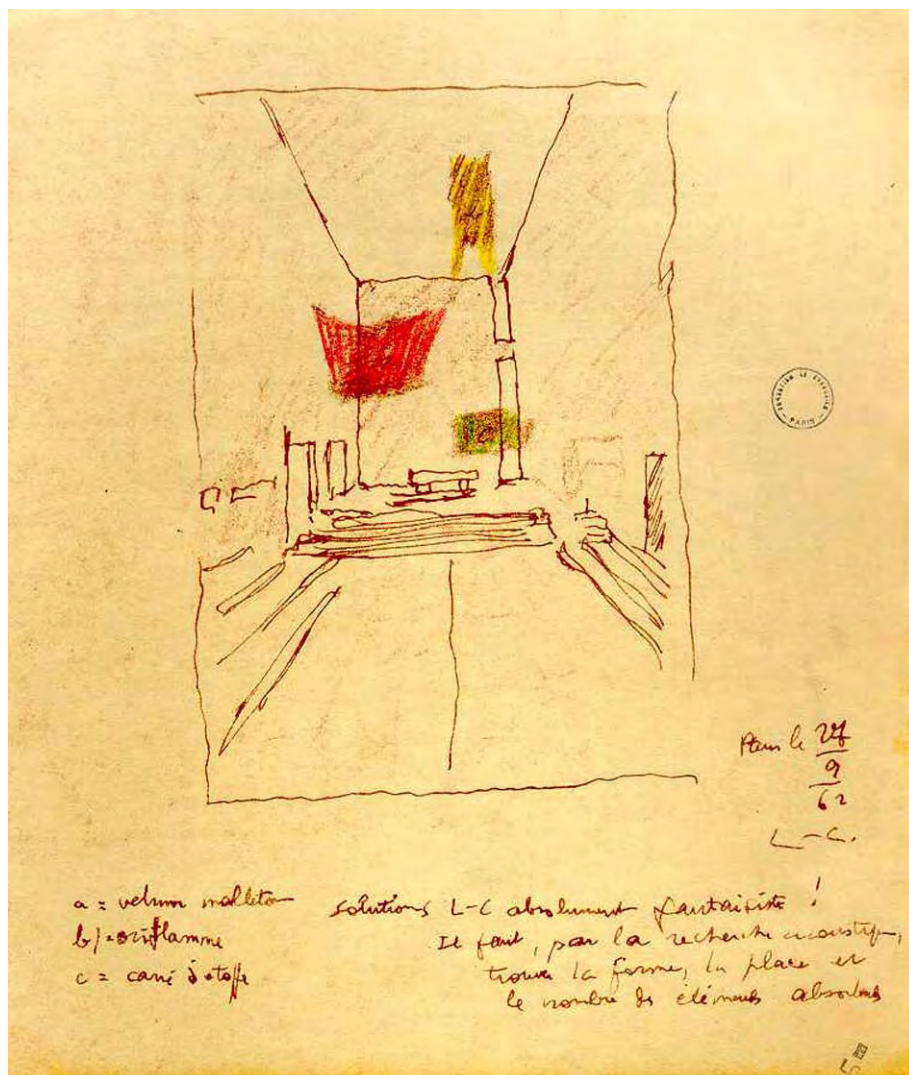 FONDATION LE CORBUSIER
PARIS
le 27
9
62
L-C.
a = velum molleton
b) = oriflamme
c = carré d'étoffe
solutions L-C absolument fantaisiste !
Il faut, par la recherche acoustique,
trouver la forme, la place et
le nombre des éléments absorbants